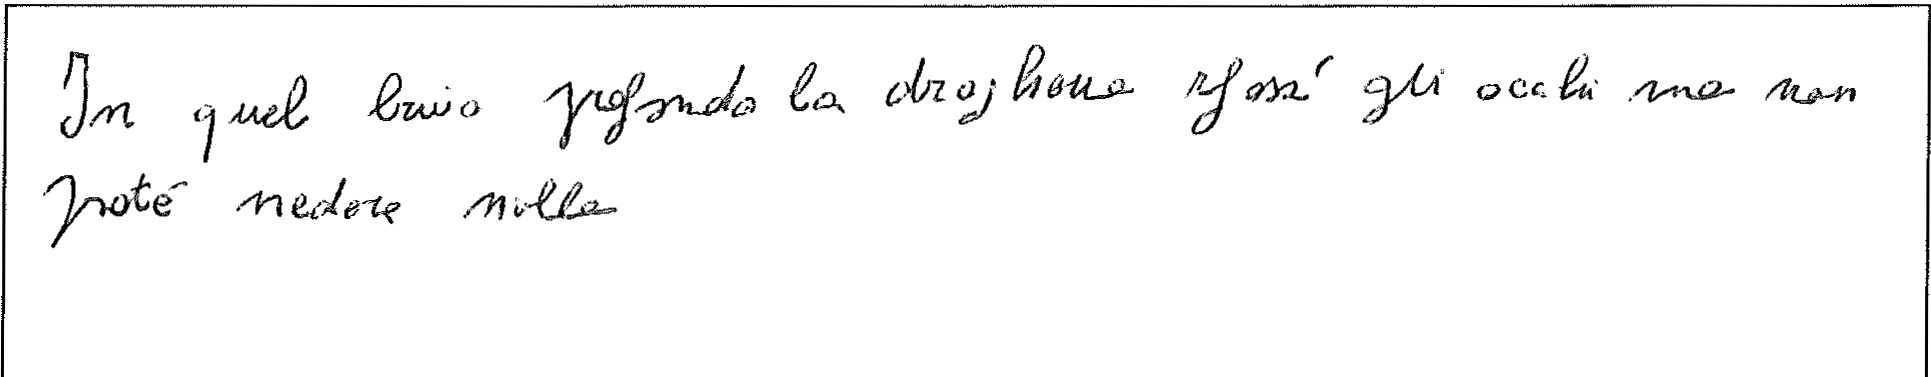 In quel buio profondo la draghona sfossí gli occhi ma non
poté vedere nulla